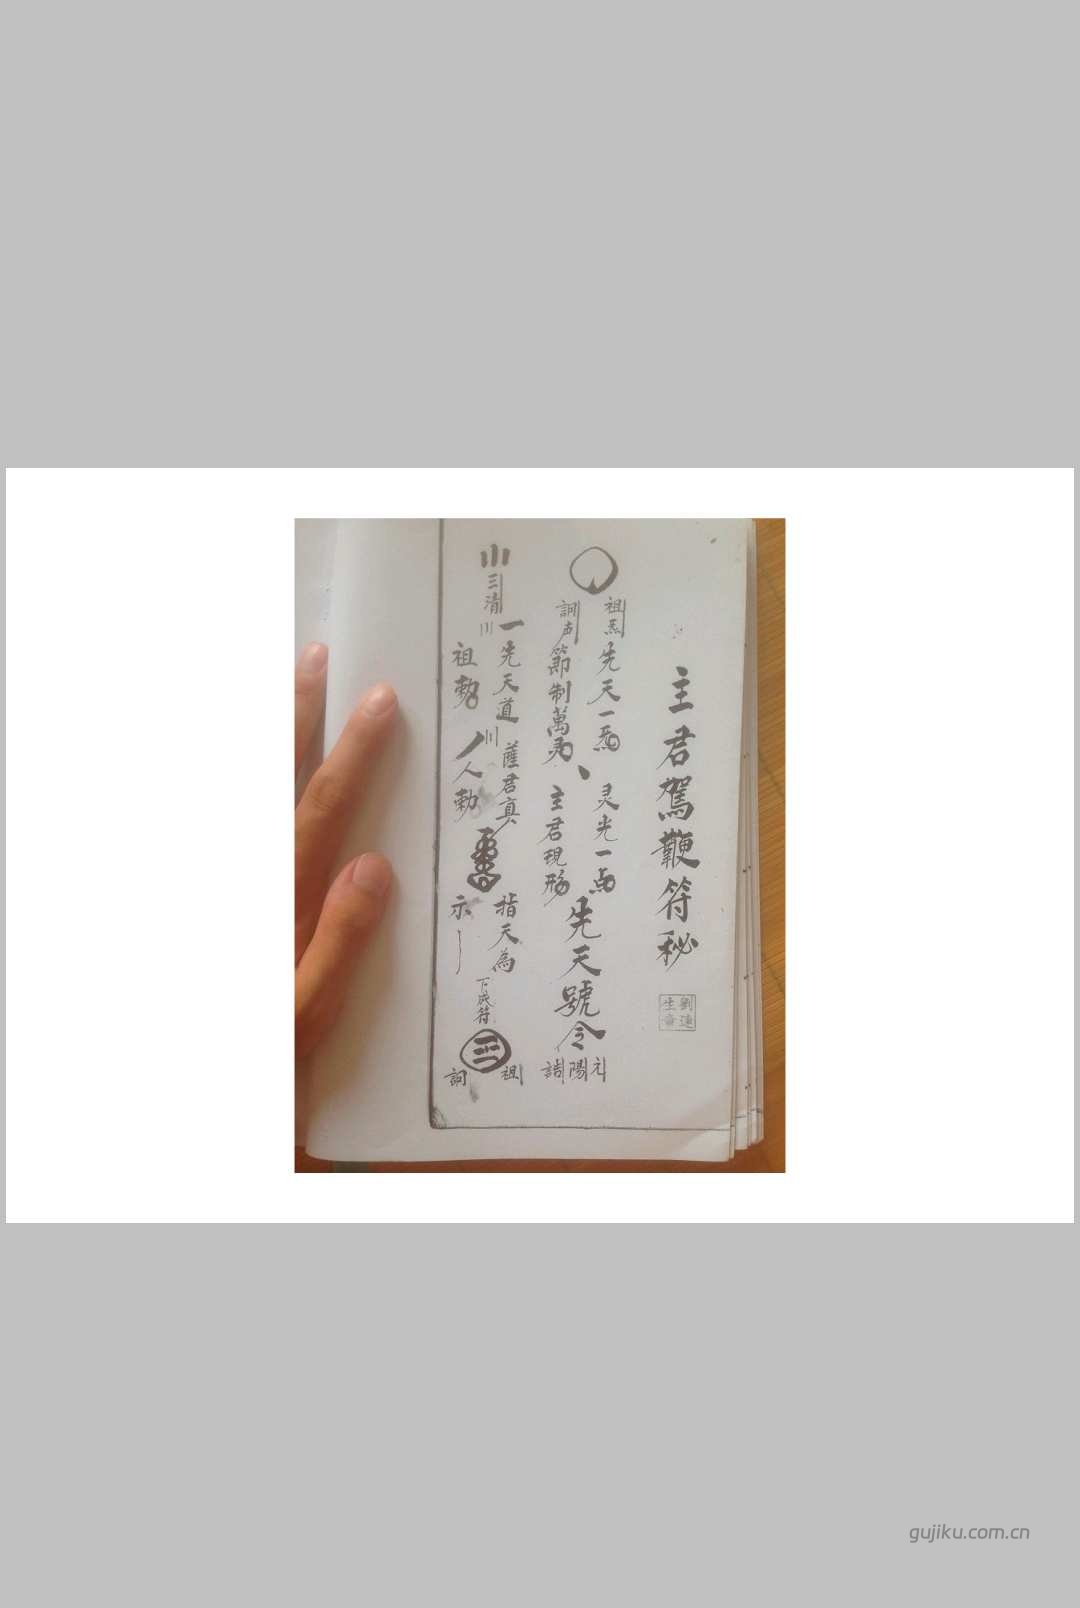 主君駕鞭符秘
劉連生章
祖炁
先天一炁
灵光一点
訶声
節制萬灵
主君現形
先天號令
陽
三清
一先天道
薩君真
指天為
祖勅
人勅
示
下成符
祖
訶
gujiku.com.cn